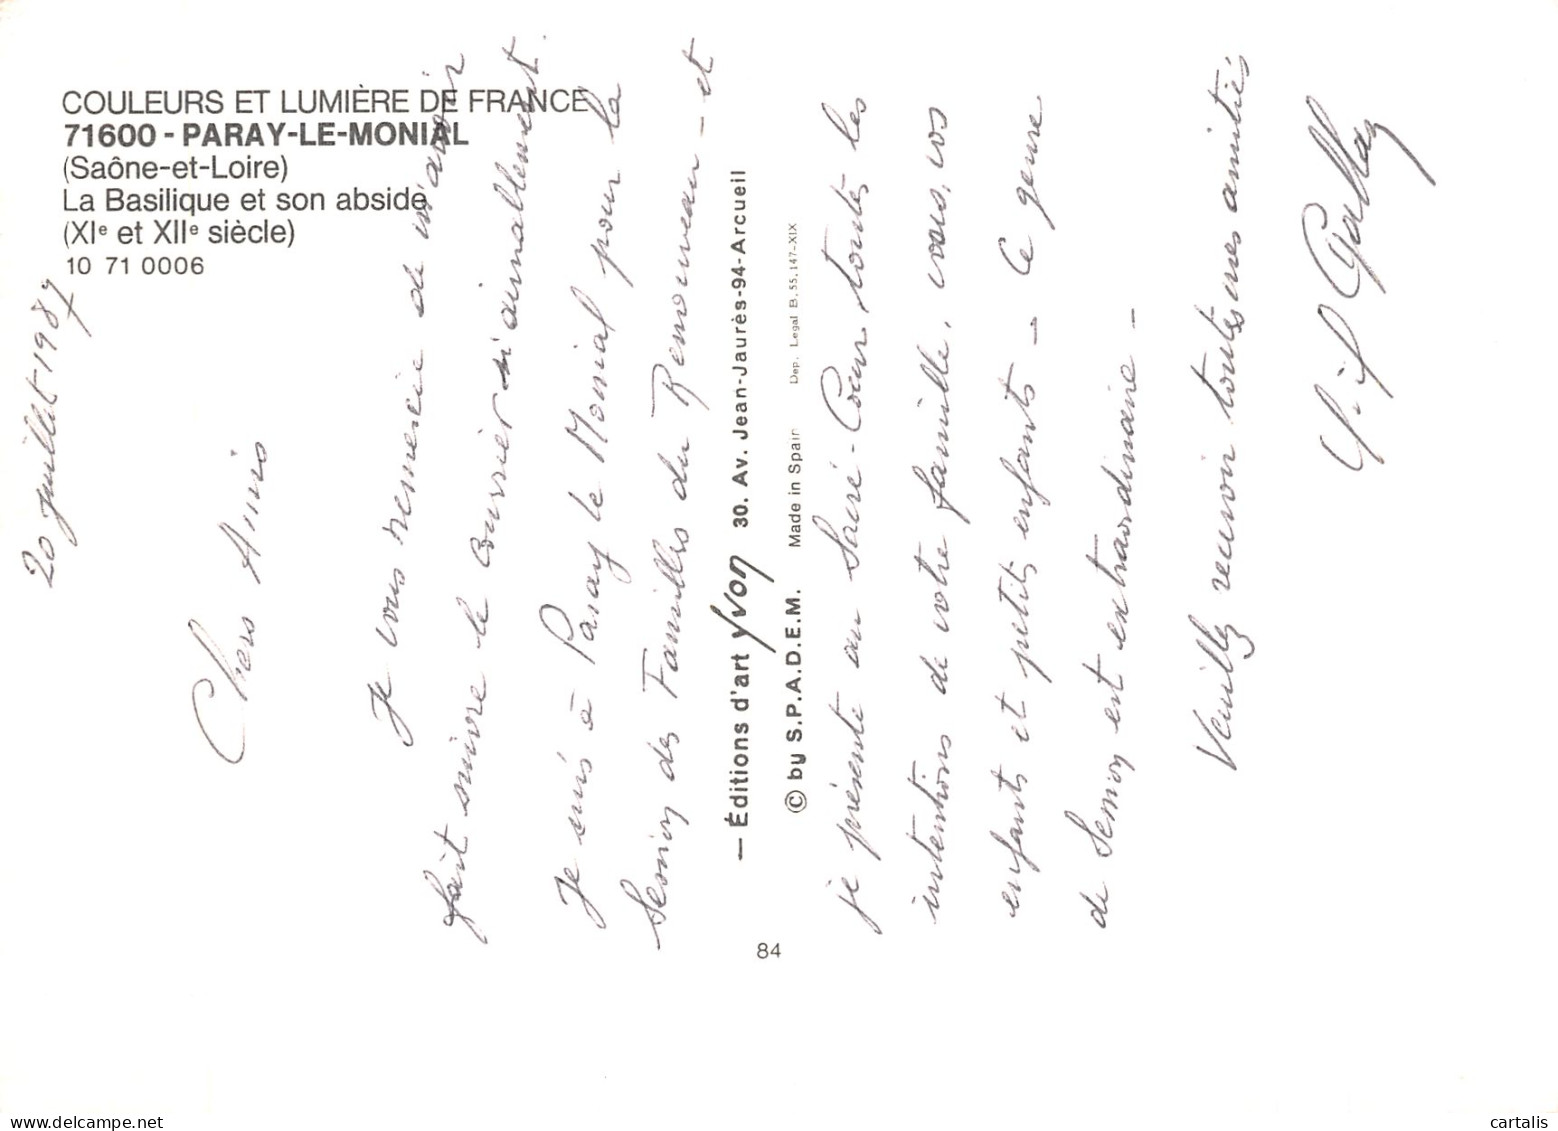 COULEURS ET LUMIÈRE DE FRANCE
71600 - PARAY-LE-MONIAL
(Saône-et-Loire)
La Basilique et son abside
(XIe et XIIe siècle)
10 71 0006
20 juillet 1987
Chers Amis
Je vous remercie de m'avoir
fait suivre le courrier si aimablement.
Je suis à Paray le Monial pour la
Session des Familles du Renouveau - et
— Éditions d'art yvon 30. Av. Jean-Jaurès-94-Arcueil
© by S.P.A.D.E.M. Made in Spain Dep. Legal B. 55.147-XIX
84
je présente au Sacré-Coeur toutes les
intentions de votre famille, vous, vos
enfants et petits enfants - Ce genre
de Session est extraordinaire -
Veuillez recevoir toutes mes amitiés
www.delcampe.net
cartalis